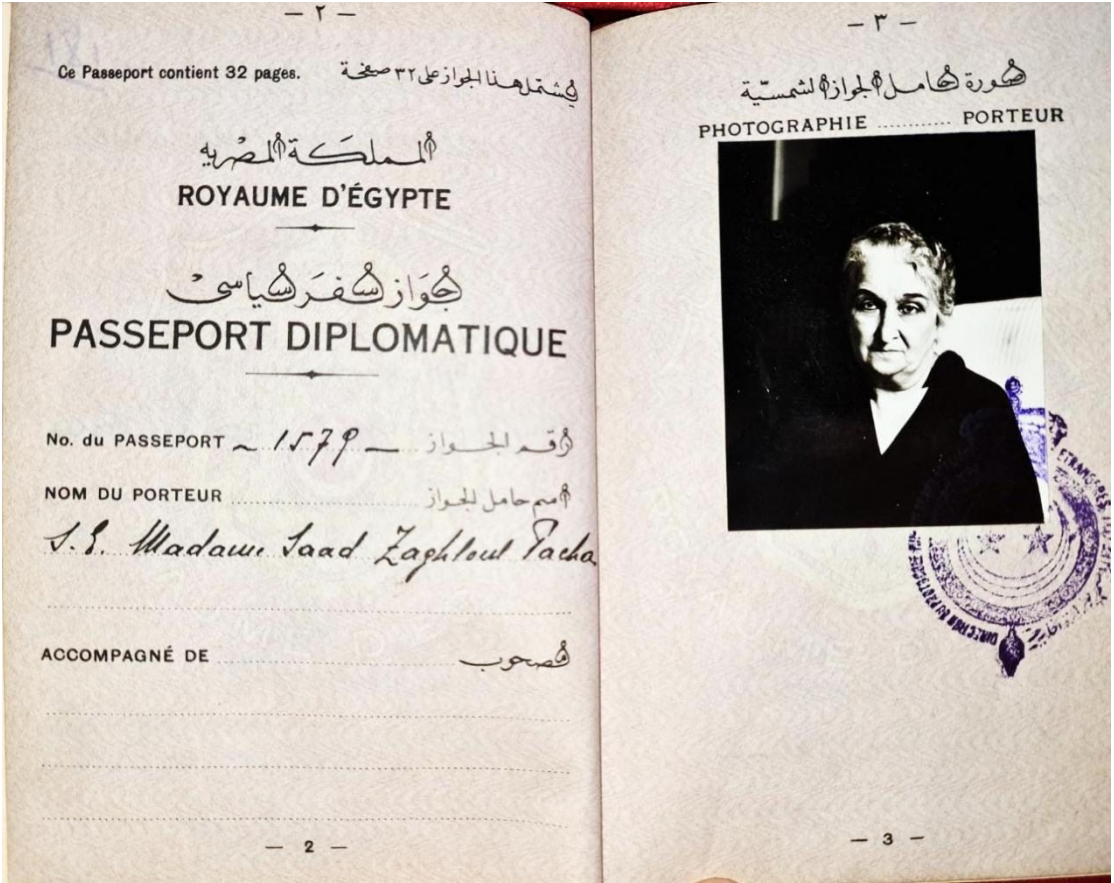 — ٢ —
Ce Passeport contient 32 pages. يشتمل هذا الجواز على ٣٢ صفحة
المملكة المصريه
ROYAUME D'ÉGYPTE
جواز سفر سياسى
PASSEPORT DIPLOMATIQUE
No. du PASSEPORT ~ 1579 — رقم الجواز
NOM DU PORTEUR اسم حامل الجواز
S.E. Madame Saad Zaghloul Pacha
ACCOMPAGNÉ DE مصحوب
— 2 —
— ٣ —
صورة حامل الجواز الشمسية
PHOTOGRAPHIE PORTEUR
ETRANGÈRES
DIRECTION DU PROTOCOLE
— 3 —